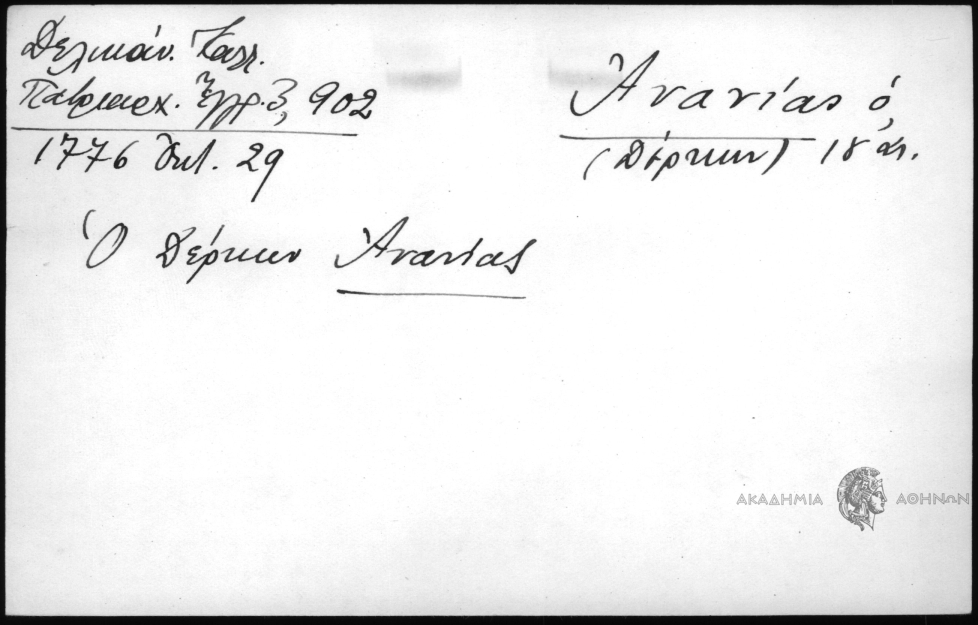 Δελικάν. Καλλ.
Πατριαρχ. Ἔγγρ. 3, 902
1776 Ὀκτ. 29
Ἀνανίας ὁ,
(Δέρκων) 18 αι.
Ὁ Δέρκων Ἀνανίας
ΑΚΑΔΗΜΙΑ ΑΘΗΝΩΝ